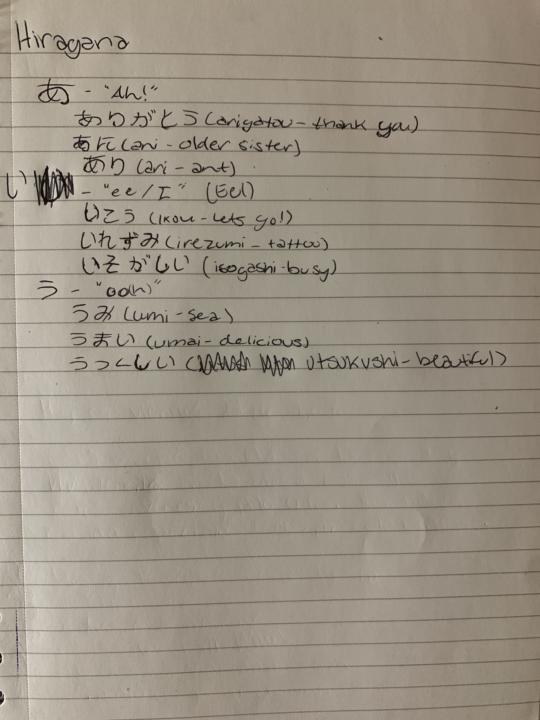 Hiragana
あ - "Ah!"
ありがとう (arigatou - thank you)
あに (ani - older sister)
あり (ari - ant)
い - "ee/I" (Eel)
いこう (ikou - lets go!)
いれずみ (irezumi - tattoo)
いそがしい (isogashi - busy)
う - "ooh)"
うみ (umi - sea)
うまい (umai - delicious)
うつくしい (utsukushi - beautiful)